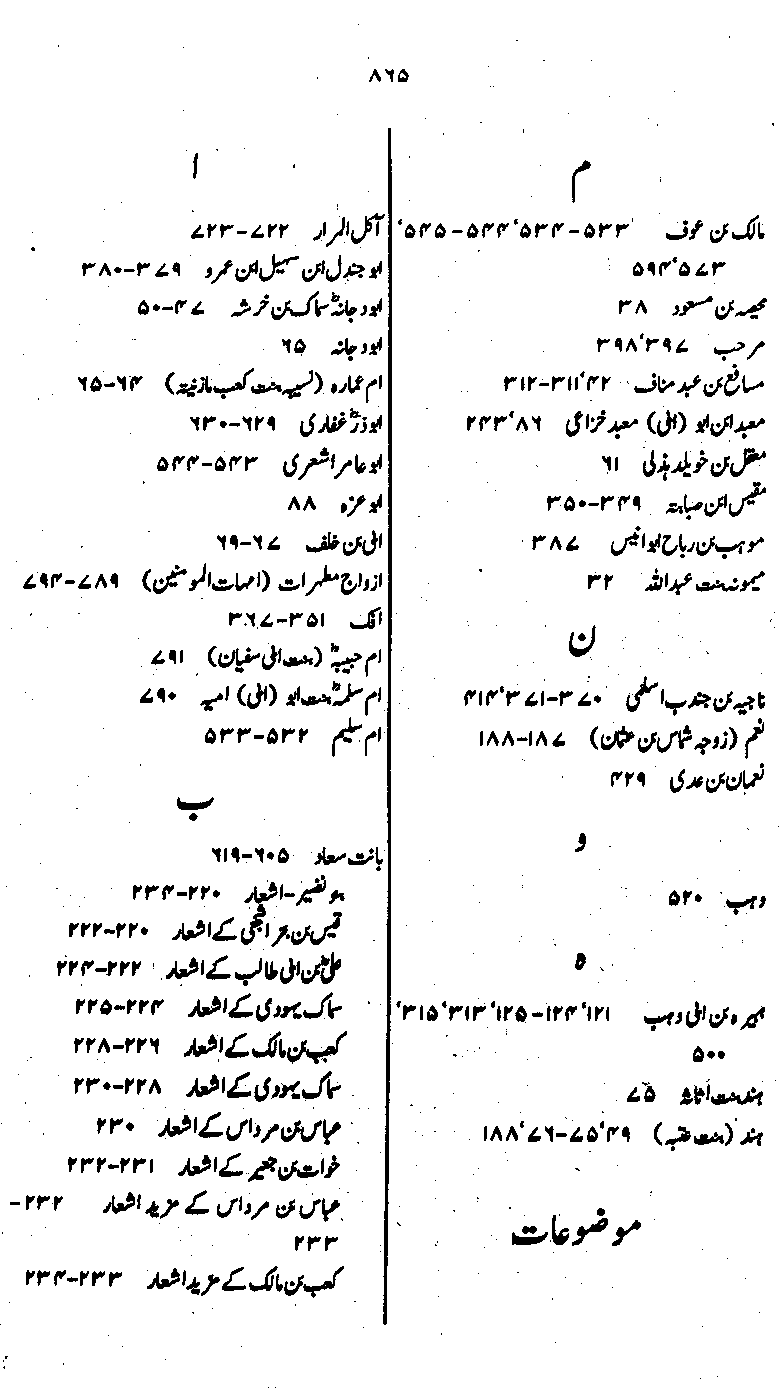 ۸۶۵
م
مالک بن عوف ۵۳۳-۵۳۴‘۵۴۴-۵۴۵‘
۵۷۳‘۵۹۴
محیصہ بن مسعود ۳۸
مرحب ۳۹۷‘۳۹۸
مسافع بن عبد مناف ۴۲‘۳۱۱-۳۱۲
معبد ابن ابو (ابی) معبد خزاعی ۸۶‘۲۴۳
معقل بن خویلد ہذلی ۶۱
مقیس ابن صبابتہ ۳۴۹-۳۵۰
موہب بن رباح ابو انیس ۳۸۷
میمونہ بنت عبد اللہ ۳۲
ن
ناجیہ بن جندب اسلمی ۳۷۰-۳۷۱‘۴۱۴
نعم (زوجہ شماس بن عثمان) ۱۸۷-۱۸۸
نعمان بن عدی ۴۲۹
و
وہب ۵۲۰
ہ
ہبیرہ بن ابی وہب ۱۲۱‘۱۲۴-۱۲۵‘۳۱۳‘۳۱۵‘
۵۰۰
ہند بنت اثاثہ ۷۵
ہند (بنت عتبہ) ۴۹‘۷۵-۷۶‘۱۸۸
موضوعات
ا
آکل المرار ۷۲۲-۷۲۳
ابو جندل ابن سہیل ابن عمرو ۳۷۹-۳۸۰
ابو دجانہؓ سماک بن خرشہ ۴۷-۵۰
ابو دجانہ ۶۵
ام عمارہ (نسیبہ بنت کعب مازنیتہ) ۶۴-۶۵
ابو ذرؓ غفاری ۶۲۹-۶۳۰
ابو عامر اشعری ۵۴۳-۵۴۴
ابو عزہ ۸۸
ابی بن خلف ۶۷-۶۹
ازواج مطہرات (امہات المومنین) ۷۸۹-۷۹۴
افک ۳۵۱-۳۶۷
ام حبیبہؓ (بنت ابی سفیان) ۷۹۱
ام سلمہؓ بنت ابو (ابی) امیہ ۷۹۰
ام سلیم ۵۳۲-۵۳۳
ب
بانت سعاد ۶۰۵-۶۱۹
بنو نضیر-اشعار ۲۲۰-۲۳۴
قیس بن بحر اشجعی کے اشعار ۲۲۰-۲۲۲
علیؓ بن ابی طالب کے اشعار ۲۲۲-۲۲۴
سماک یہودی کے اشعار ۲۲۴-۲۲۵
کعب بن مالک کے اشعار ۲۲۶-۲۲۸
سماک یہودی کے اشعار ۲۲۸-۲۳۰
عباس بن مرداس کے اشعار ۲۳۰
خوات بن جبیر کے اشعار ۲۳۱-۲۳۲
عباس بن مرداس کے مزید اشعار ۲۳۲-
۲۳۳
کعب بن مالک کے مزید اشعار ۲۳۳-۲۳۴